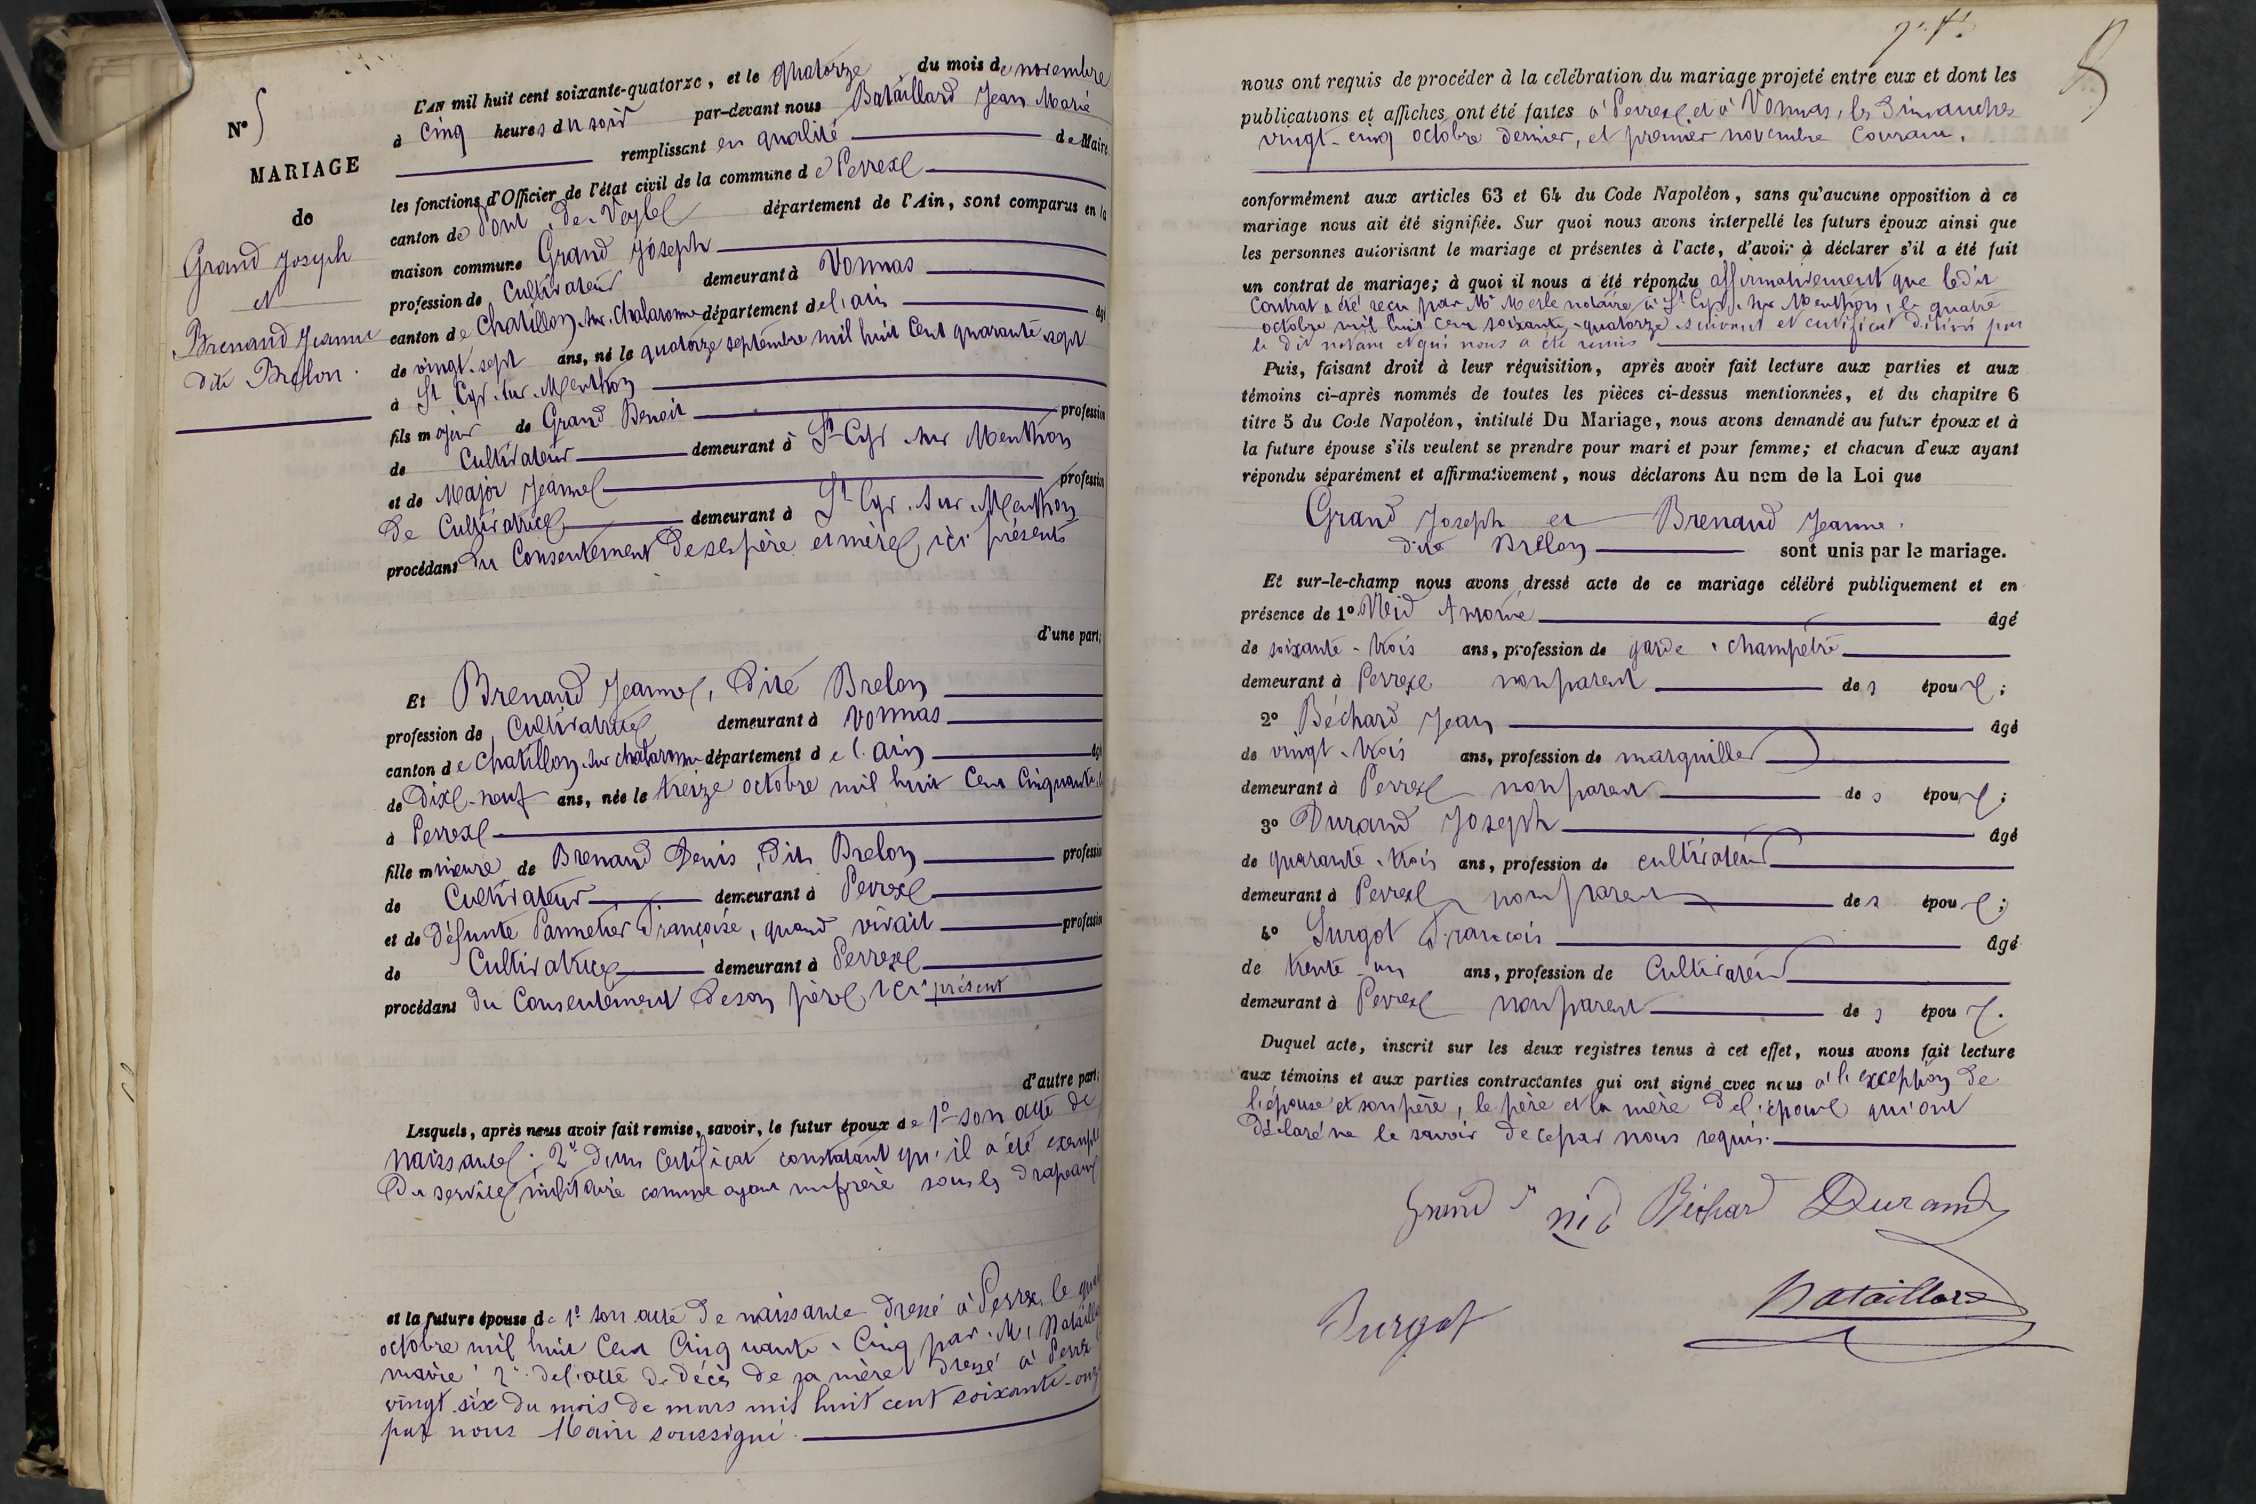 N° 5
MARIAGE
de
Grand Joseph
et
Brenand Jeanne
dite Brelon.
L'AN mil huit cent soixante-quatorze, et le quatorze du mois de novembre
à cinq heures du soir par-devant nous Bataillard Jean Marie
remplissant en qualité de Maire
les fonctions d'Officier de l'état civil de la commune de Perrex
canton de Pont-de-Veyle département de l'Ain, sont comparus en la
maison commune Grand Joseph
profession de Cultivateur demeurant à Vonnas
canton de Chatillon-sur-Chalaronne département de l'ain âgé
de vingt-sept ans, né le quatorze septembre mil huit cent quarante sept
à St Cyr-sur-Menthon
fils majeur de Grand Benoit profession
de Cultivateur demeurant à St Cyr sur Menthon
et de Major Jeanne profession
de Cultivatrice demeurant à St Cyr-sur-Menthon
procédant du Consentement de ses père et mère, ici présents
d'une part;
Et Brenand Jeanne, dite Brelon
profession de Cultivatrice demeurant à Vonnas
canton de Chatillon-sur-Chalaronne département de l'ain âgé
de dixe-neuf ans, née le treize octobre mil huit cent cinquante
à Perrex
fille mineure de Brenand Denis, dit Brelon profession
de Cultivateur demeurant à Perrex
et de défunte Pannetier Françoise, quand vivait profession
de Cultivatrice demeurant à Perrex
procédant du Consentement de son père, ici présent
d'autre part;
Lesquels, après nous avoir fait remise, savoir, le futur époux de 1° son acte de
naissance; 2° d'un Certificat constatant qu'il a été exempté
du service militaire comme ayant un frère sous les drapeaux
et la future épouse de 1° son acte de naissance dressé à Perrex, le
octobre mil huit cent cinquante-cinq par Mr
maire 2° de l'acte de décès de sa mère dressé à Perrex
vingt-six du mois de mars mil huit cent soixante-onze
par nous Maire soussigné.
5
nous ont requis de procéder à la célébration du mariage projeté entre eux et dont les
publications et affiches ont été faites à Perrex et à Vonnas, les Dimanches
vingt-cinq octobre dernier, et premier novembre courant.
conformément aux articles 63 et 64 du Code Napoléon, sans qu'aucune opposition à ce
mariage nous ait été signifiée. Sur quoi nous avons interpellé les futurs époux ainsi que
les personnes autorisant le mariage et présentes à l'acte, d'avoir à déclarer s'il a été fait
un contrat de mariage; à quoi il nous a été répondu affirmativement que ledit
contrat a été reçu par Me Merle notaire à St Cyr-sur-Menthon, le quatre
octobre mil huit cent soixante-quatorze suivant et certificat délivré par
le dit notaire et qui nous a été remis
Puis, faisant droit à leur réquisition, après avoir fait lecture aux parties et aux
témoins ci-après nommés de toutes les pièces ci-dessus mentionnées, et du chapitre 6
titre 5 du Code Napoléon, intitulé Du Mariage, nous avons demandé au futur époux et à
la future épouse s'ils veulent se prendre pour mari et pour femme; et chacun d'eux ayant
répondu séparément et affirmativement, nous déclarons Au nom de la Loi que
Grand Joseph et Brenand Jeanne.
dite Brelon sont unis par le mariage.
Et sur-le-champ nous avons dressé acte de ce mariage célébré publiquement et en
présence de 1° Neid Antoine âgé
de soixante-trois ans, profession de garde-champêtre
demeurant à Perrex non parent des époux;
2° Béchard Jean âgé
de vingt-trois ans, profession de marguillier
demeurant à Perrex non parent des époux;
3° Durand Joseph âgé
de quarante-trois ans, profession de cultivateur
demeurant à Perrex non parent des époux;
4° Surgot François âgé
de trente-un ans, profession de Cultivateur
demeurant à Perrex non parent des époux.
Duquel acte, inscrit sur les deux registres tenus à cet effet, nous avons fait lecture
aux témoins et aux parties contractantes qui ont signé avec nous à l'exception de
l'épouse et son père, le père et la mère de l'époux qui ont
déclaré ne le savoir de ce par nous requis.
Grand J nid Béchard Durand
Surgot Bataillard